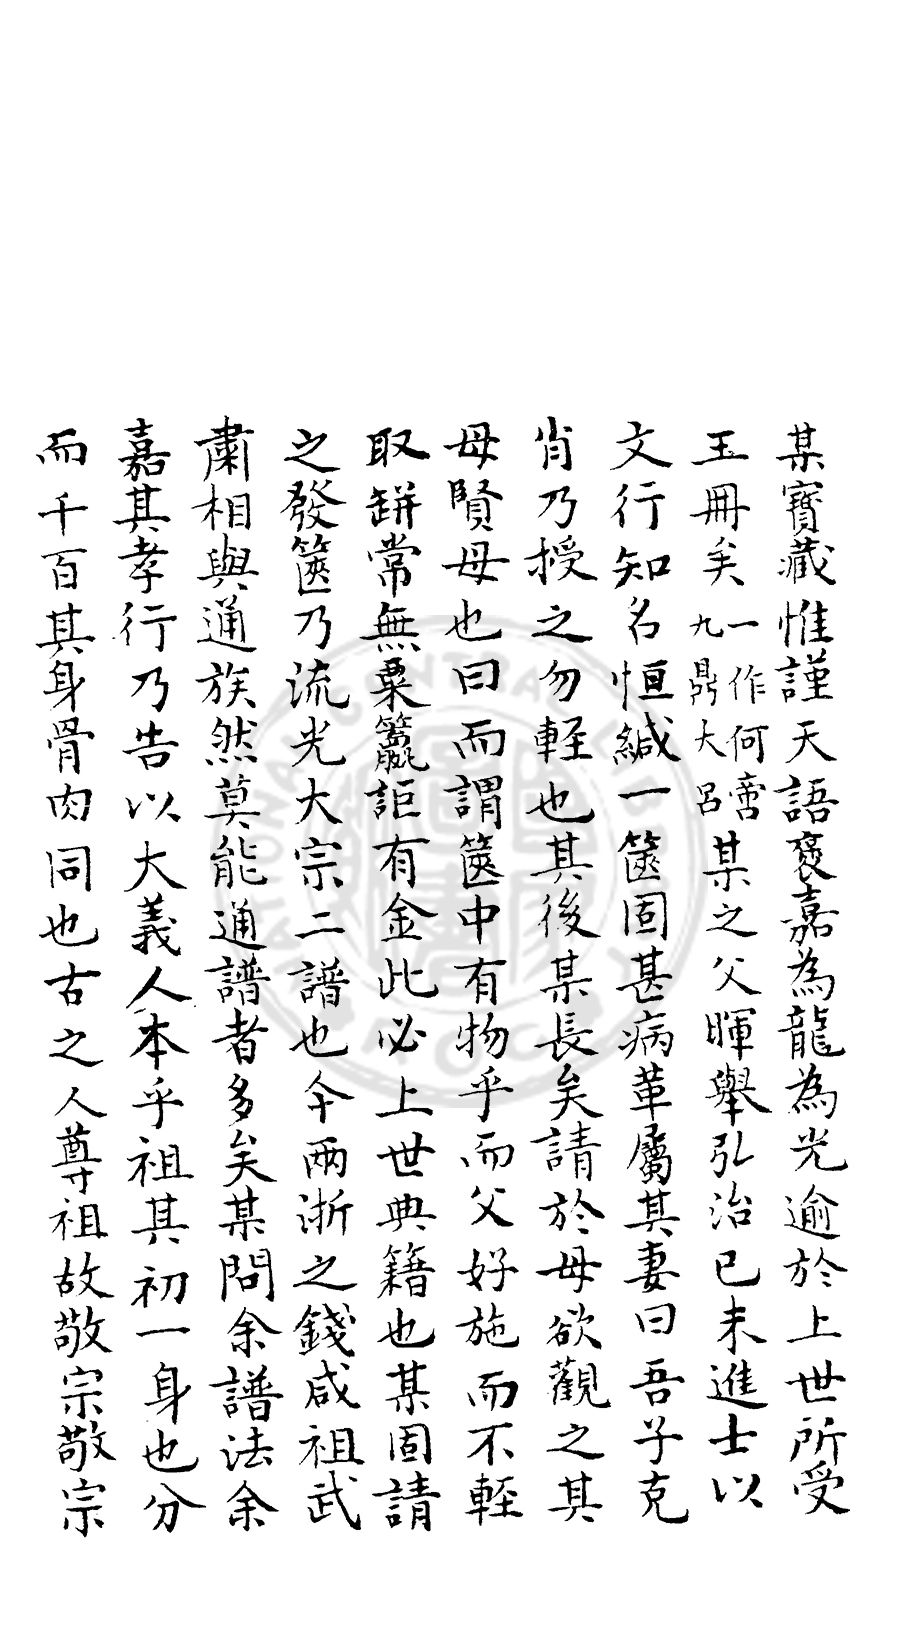 某寶藏惟謹天語褒嘉為龍為光逾於上世所受
玉冊矣一作何啻九鼎大呂某之父暉舉弘治已未進士以
文行知名恒緘一篋固甚病革屬其妻曰吾子克
肖乃授之勿輕也其後某長矣請於母欲觀之其
母賢母也曰而謂篋中有物乎而父好施而不輕
取缾常無粟籯詎有金此必上世典籍也某固請
之發篋乃流光大宗二譜也今兩浙之錢咸祖武
肅相與通族然莫能通譜者多矣某問余譜法余
嘉其孝行乃告以大義人本乎祖其初一身也分
而千百其身骨肉同也古之人尊祖故敬宗敬宗